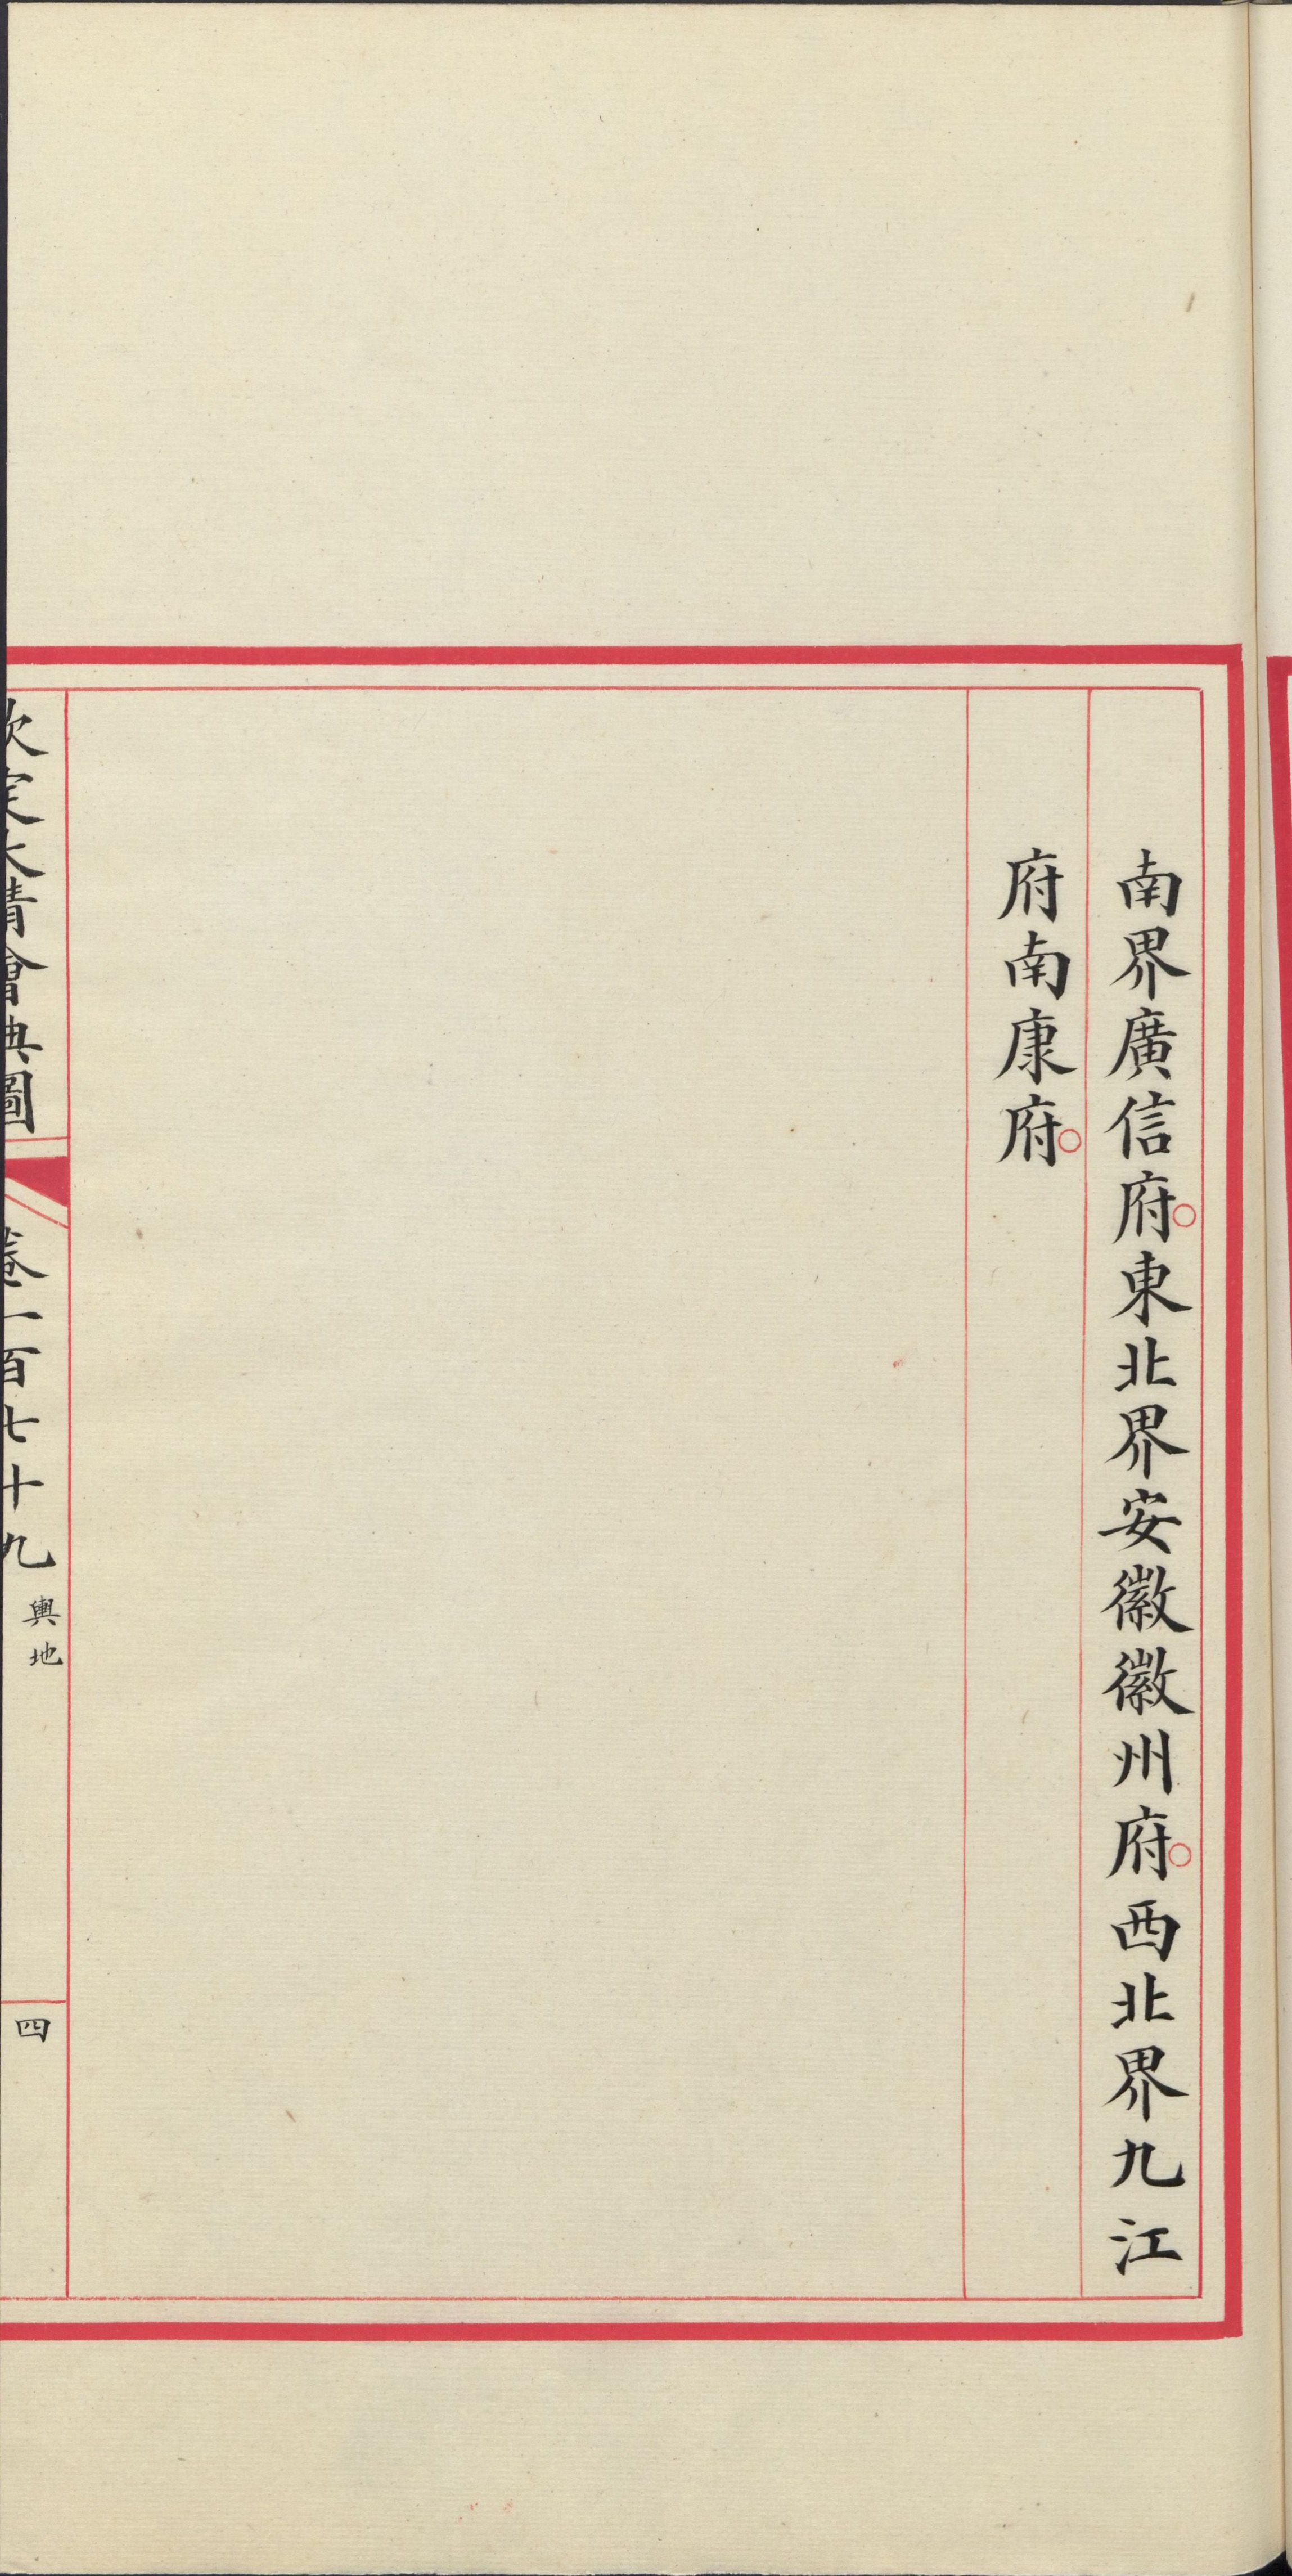 南界廣信府。東北界安徽徽州府。西北界九江
府南康府。
欽定大清會典圖
卷一百七十九
輿地
四